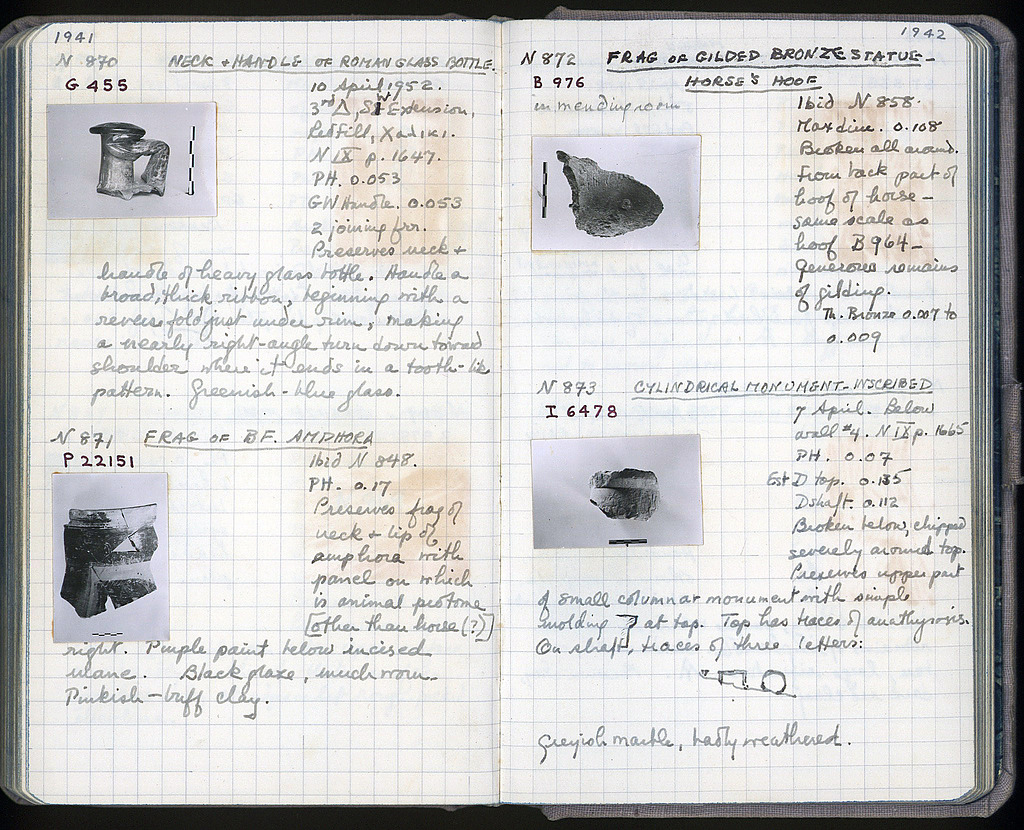 1941
N 870 NECK + HANDLE OF ROMAN GLASS BOTTLE.
G 455
10 April 1952.
3rd Δ, SW Extension,
Red Fill, Χαλίκι.
N IX p. 1647.
PH. 0.053
GW Handle. 0.053
2 joining frr.
Preserves neck +
handle of heavy glass bottle. Handle a
broad, thick ribbon, beginning with a
reverse fold just under rim, making
a nearly right-angle turn down toward
shoulder where it ends in a tooth-like
pattern. Greenish-blue glass.
N 871 FRAG OF B.F. AMPHORA
P 22151
Ibid N 848.
PH. 0.17
Preserves frag of
neck + lip of
amphora with
panel on which
is animal protome
[other than horse (?)]
right. Purple paint below incised
mane. Black glaze, much worn.
Pinkish-buff clay.
1942
N 872 FRAG OF GILDED BRONZE STATUE-
B 976 HORSE'S HOOF
in mending room
Ibid N 858.
Max dim. 0.108
Broken all around.
From back part of
hoof of horse -
same scale as
hoof B 964 -
Generous remains
of gilding.
Th. Bronze 0.007 to
0.009
N 873 CYLINDRICAL MONUMENT-INSCRIBED
I 6478
7 April. Below
wall #4. N IX p. 1665
PH. 0.07
Est D top. 0.135
D shaft. 0.112
Broken below, chipped
severely around top.
Preserves upper part
of small columnar monument with simple
molding at top. Top has traces of anathyrosis.
On shaft, traces of three letters:
Greyish marble, badly weathered.